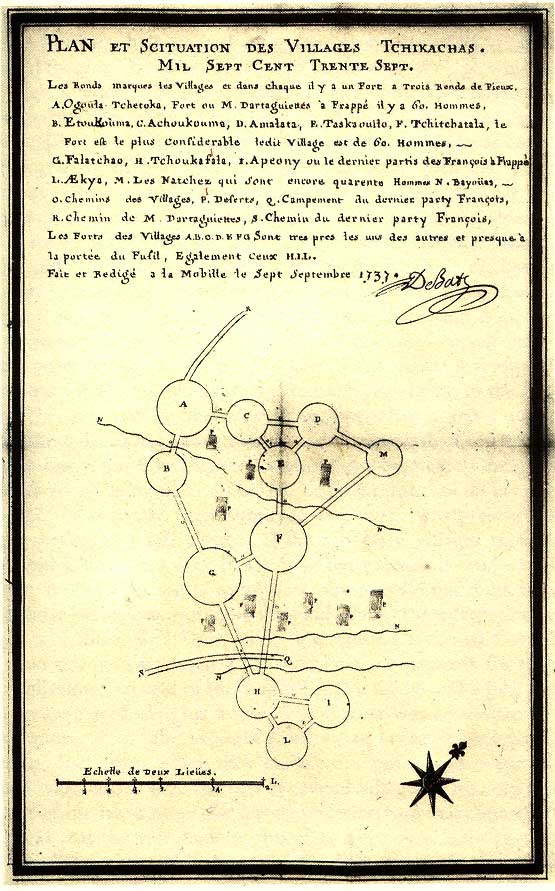 PLAN ET SCITUATION DES VILLAGES TCHIKACHAS.
MIL SEPT CENT TRENTE SEPT.
Les Ronds marques les Villages et dans chaque il y a un Fort a Trois Ronds de Pieux.
A. Ogoula-Tchetoka, Fort ou M. Dartaguiettes à Frappé il y a 60. Hommes,
B. Etoukouma, C. Achoukouma, D. Amalata, E. Taskaouilo, F. Tchitchatala, le
Fort est le plus Considerable ledit Village est de 60. Hommes, —
G. Falatchao, H. Tchoukafala, I. Apeony ou le dernier partis des François à Frappé
L. Ækya, M. Les Natchez qui sont encore quarente Hommes N. Bayoües, —
O. Chemins des Villages, P. Deserts, Q. Campement du dernier party François,
R. Chemin de M. Dartaguiettes, S. Chemin du dernier party François,
Les Forts des Villages A.B.C.D.E.F.G Sont tres pres les uns des autres et presque à
la portée du Fusil, Egalement Ceux H.I.L.
Fait et Redigé a la Mobille le Sept Septembre 1737. De Batz
R
A
C
D
N
B
E
M
P
P
P
P
F
G
P
P
P
P
P
P
N
S
Q
N
H
I
L
Echelle de Deux Lieües.
L.